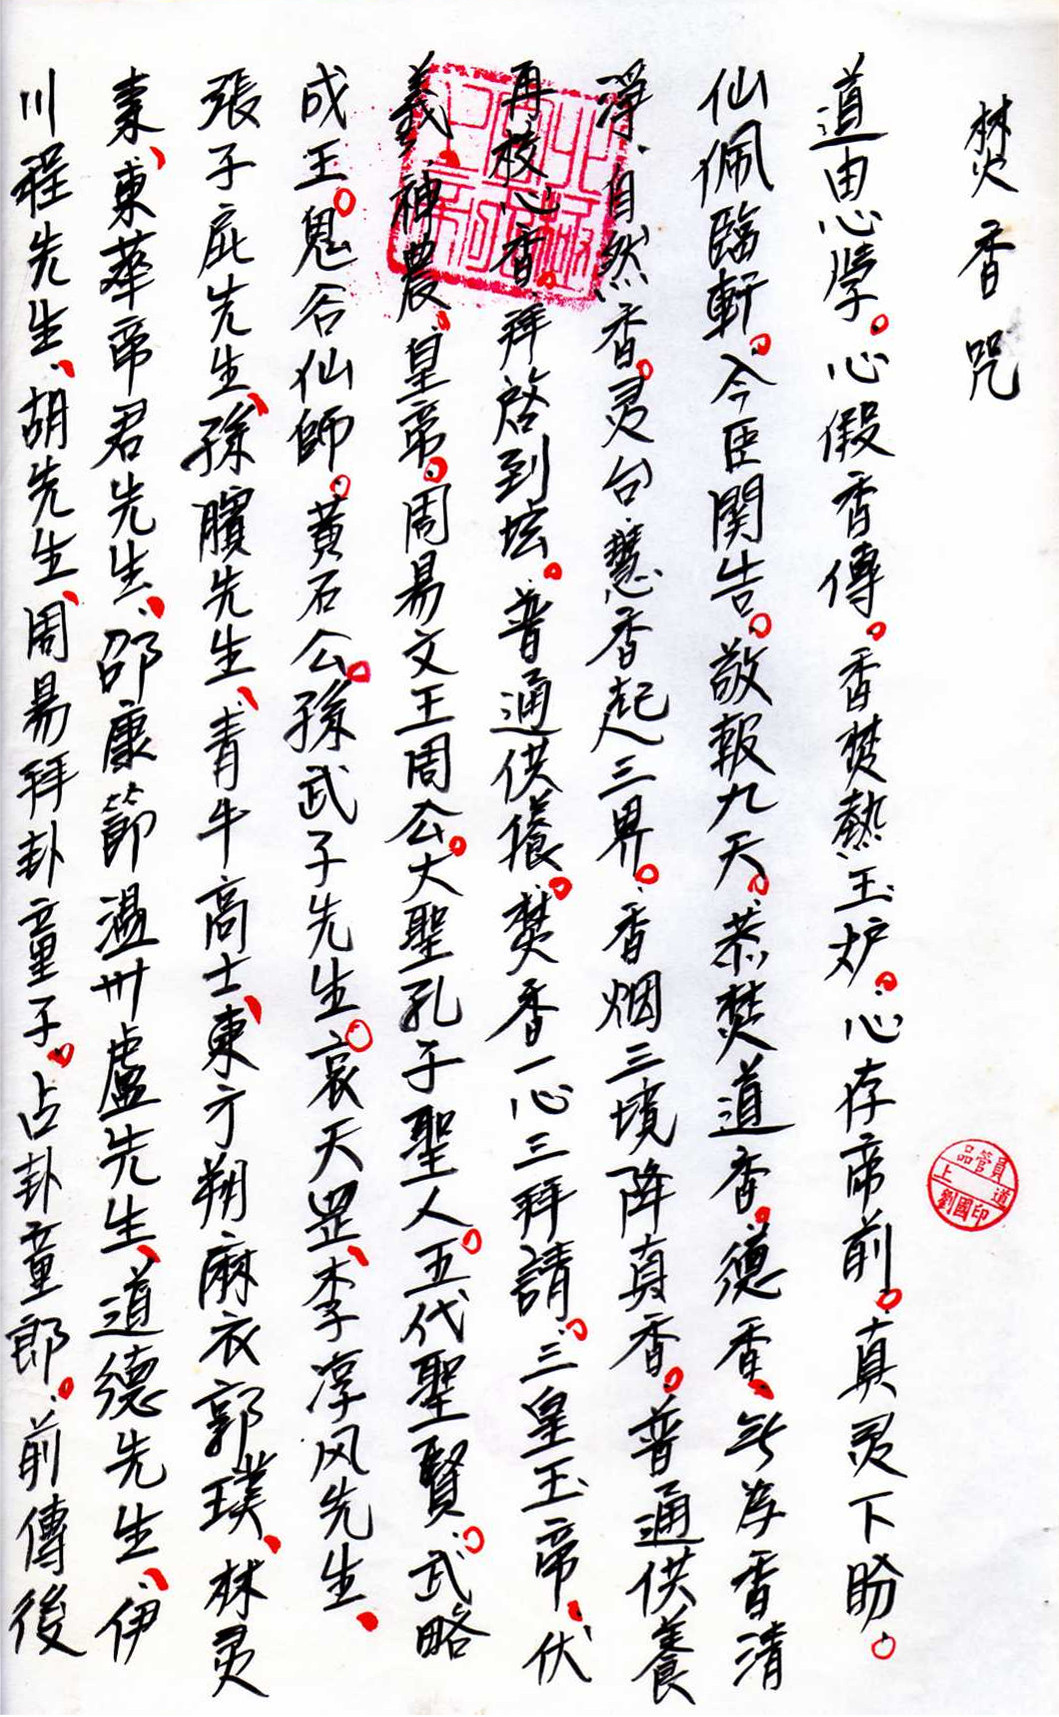 焚香咒
道由心學。心假香傳。香焚熱玉炉。心存帝前。真灵下盼。
仙佩臨軒。今臣関告。敬報九天。恭焚道香。德香、無為香清
淨、自然香。灵台慧香起三界。香烟三境降真香。普通供養
再校心香。拜啓到坛。普通供養。焚香一心三拜請。三皇玉帝、伏
羲、神農、皇帝。周易文王周公。大聖孔子聖人。五代聖賢。武略
成王。鬼谷仙師。黄石公。孫武子先生。袁天罡、李淳风先生、
張子房先生、孫臏先生、青牛高士、東方朔麻衣郭璞、林灵
素、東華帝君先生、邵康節温州盧先生、道德先生、伊
川程先生、胡先生、周易拜卦童子。占卦童郎。前傳後
品管員
上 道
劉國印